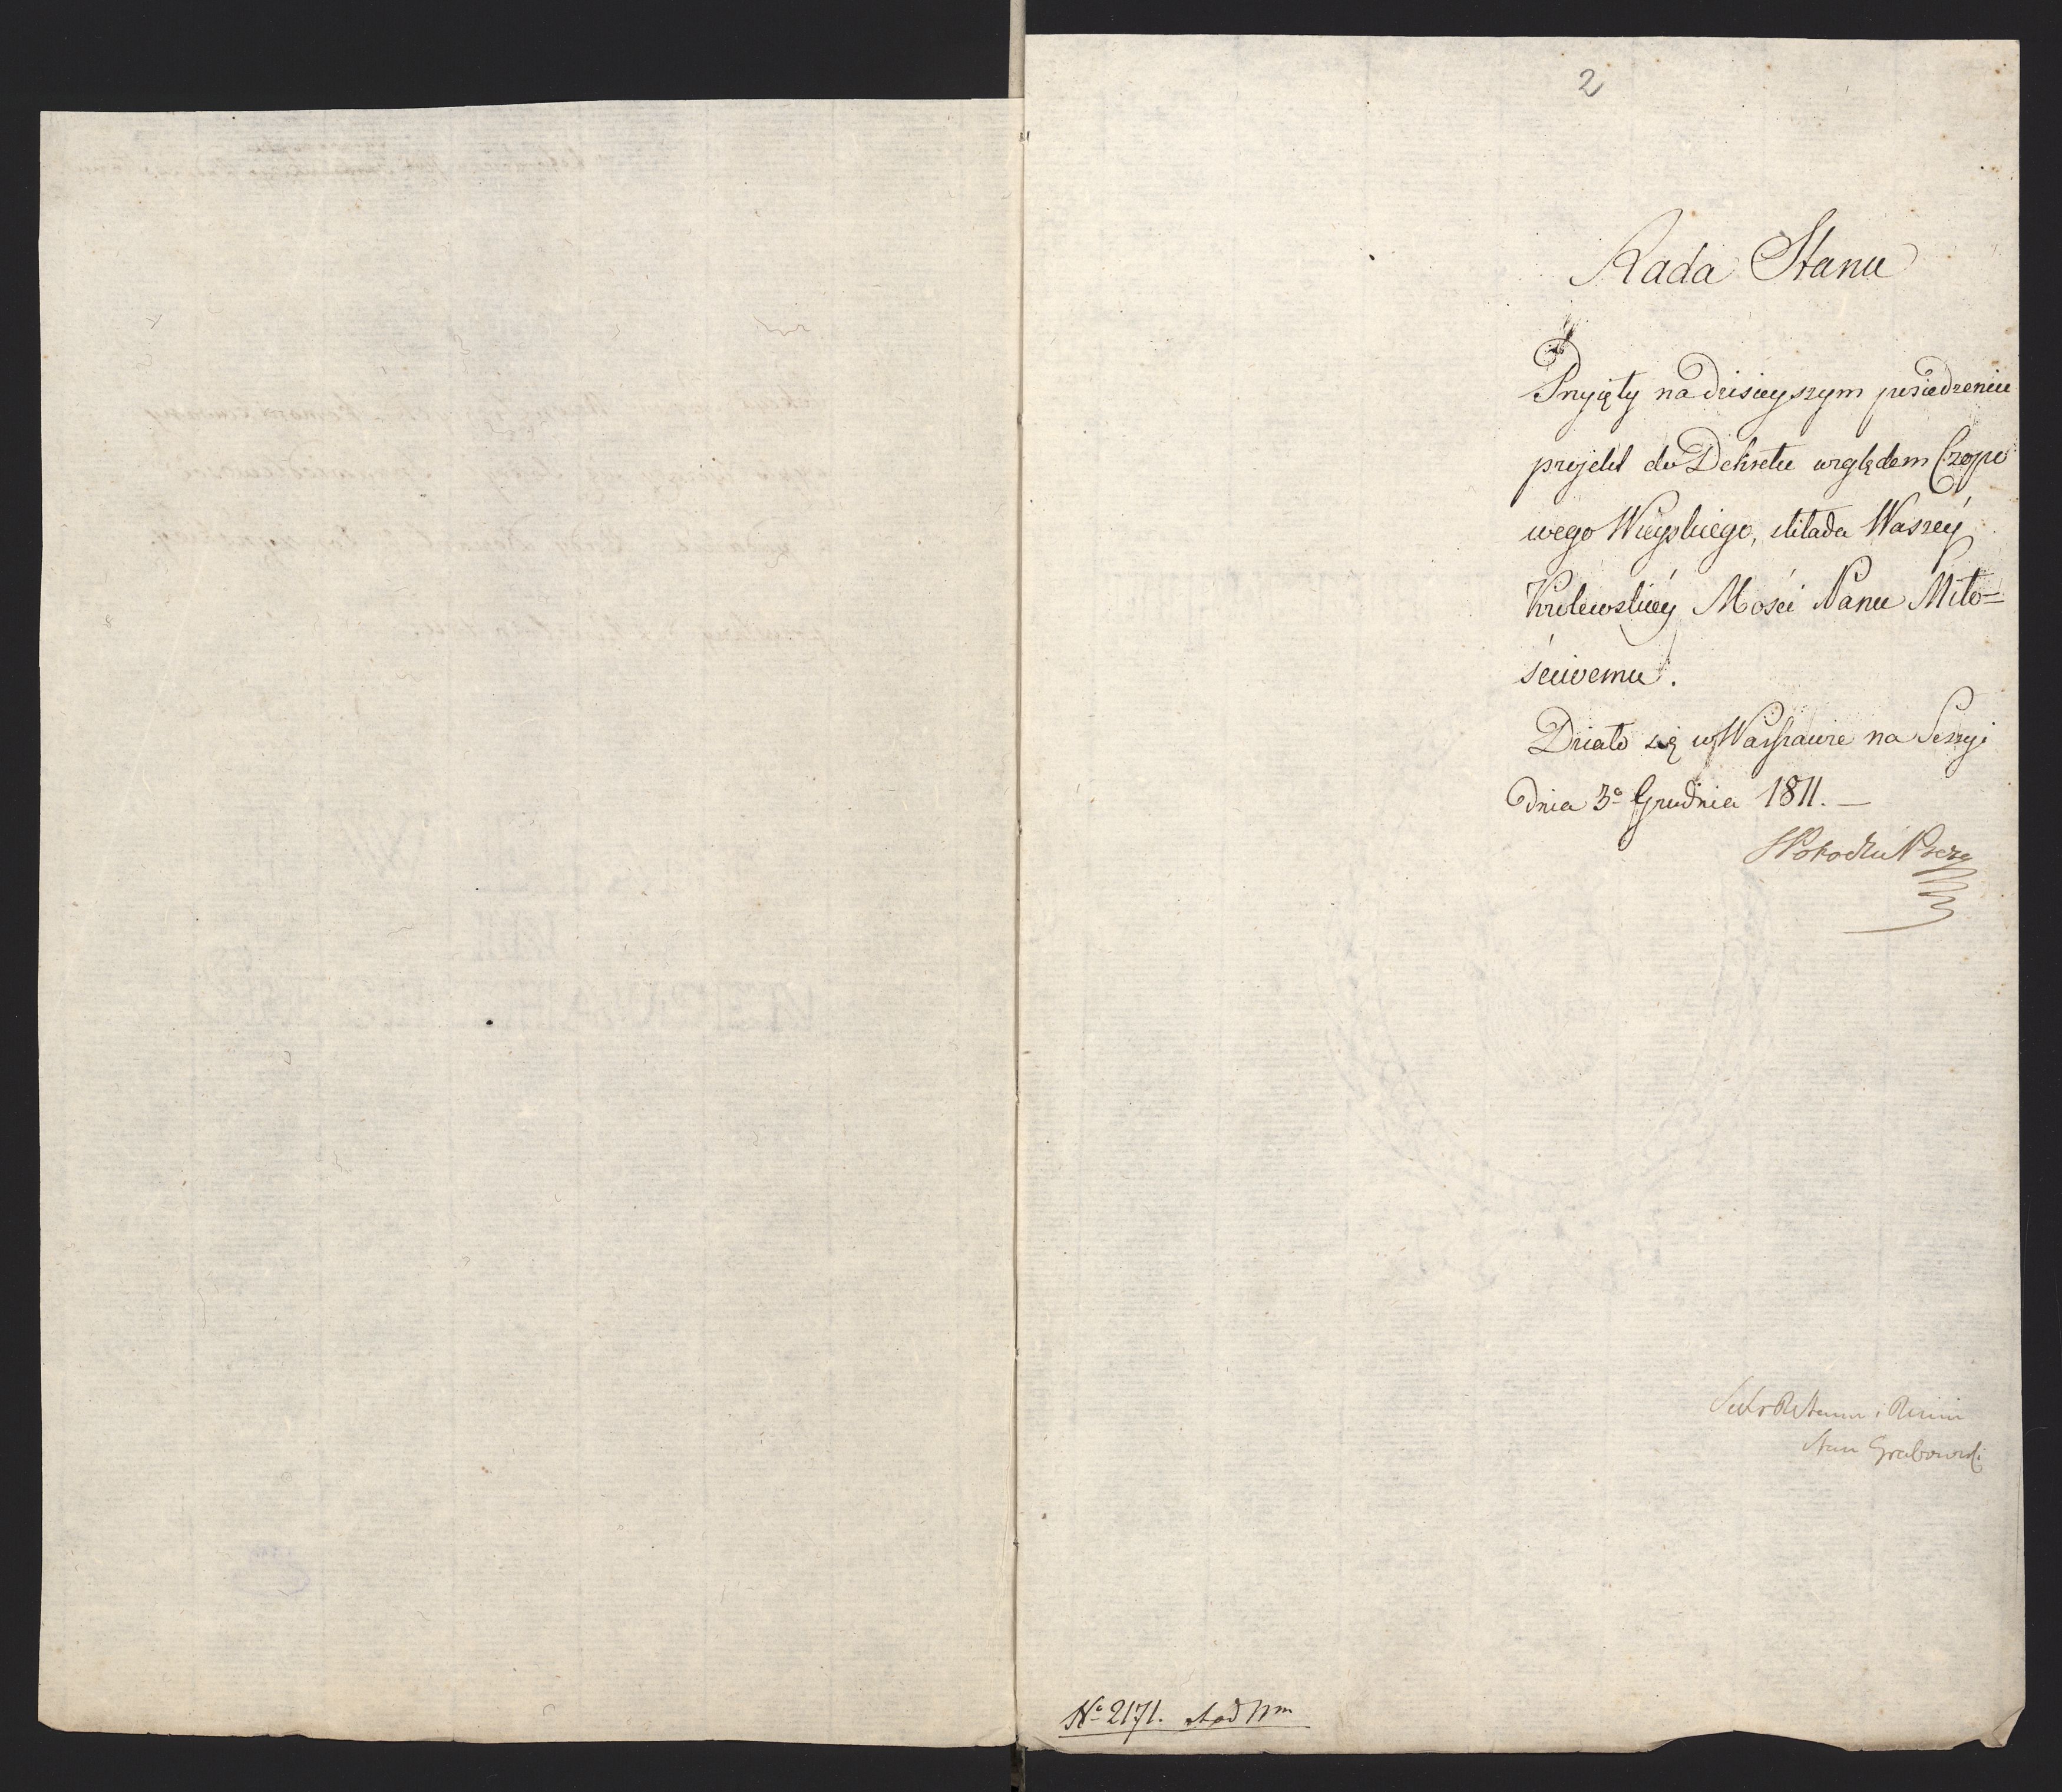 2
Rada Stanu
Przyięty na dzisieyszym posiedzeniu
projekt do Dekretu względem Czopo
wego Wieyskiego, składa Waszey
Królewskiey Mości Panu Miło=
ściwemu.
Działo się w Warszawie na Sessyi
dnia 3º Grudnia 1811. —
Potocki Prezes
Sekr R Stanu i
Stan Grabowski
Nº 2171.